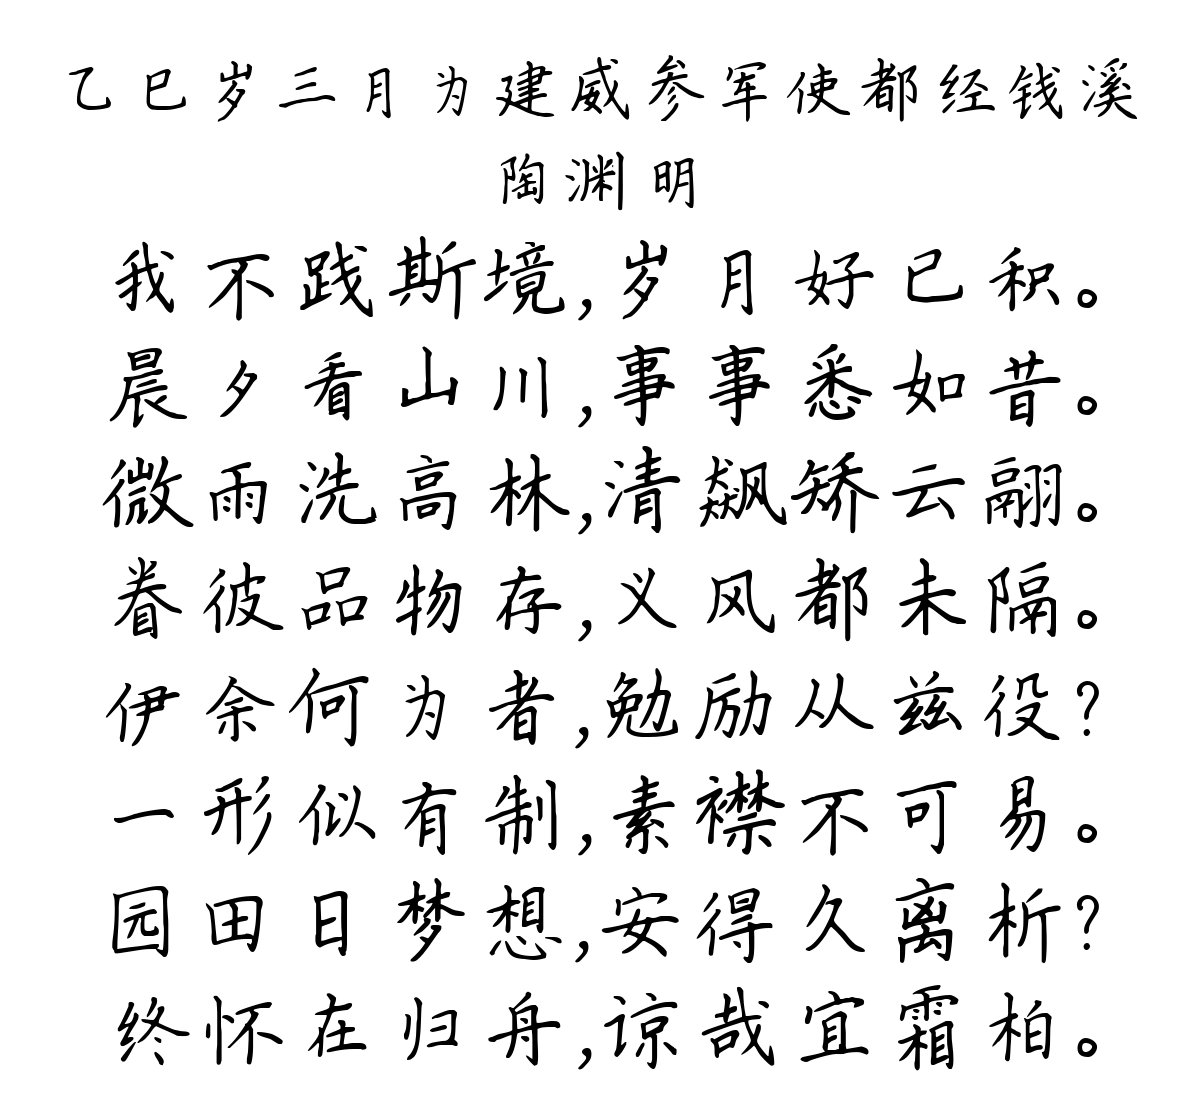 乙巳岁三月为建威参军使都经钱溪
陶渊明
我不践斯境,岁月好已积。
晨夕看山川,事事悉如昔。
微雨洗高林,清飙矫云翮。
眷彼品物存,义风都未隔。
伊余何为者,勉励从兹役?
一形似有制,素襟不可易。
园田日梦想,安得久离析?
终怀在归舟,谅哉宜霜柏。